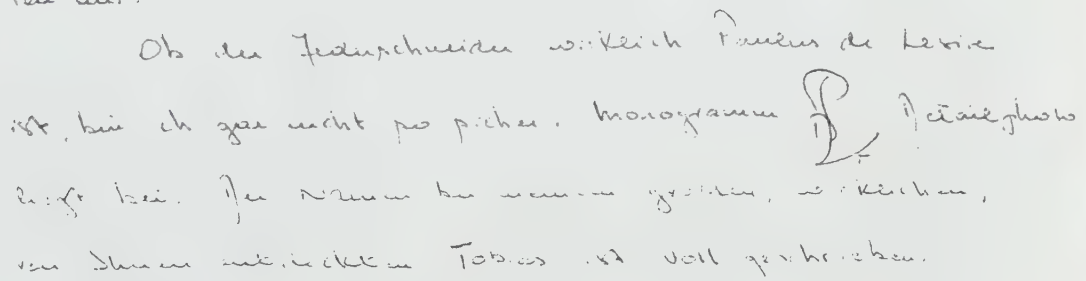 Ob der Federschneider wirklich Paulus de Lesire
ist, bin ich gar nicht so sicher. Monogramm Detailphoto
liegt bei. Der Name bei meinem großen, wirklichen,
von Ihnen entdeckten Tobias ist voll geschrieben.